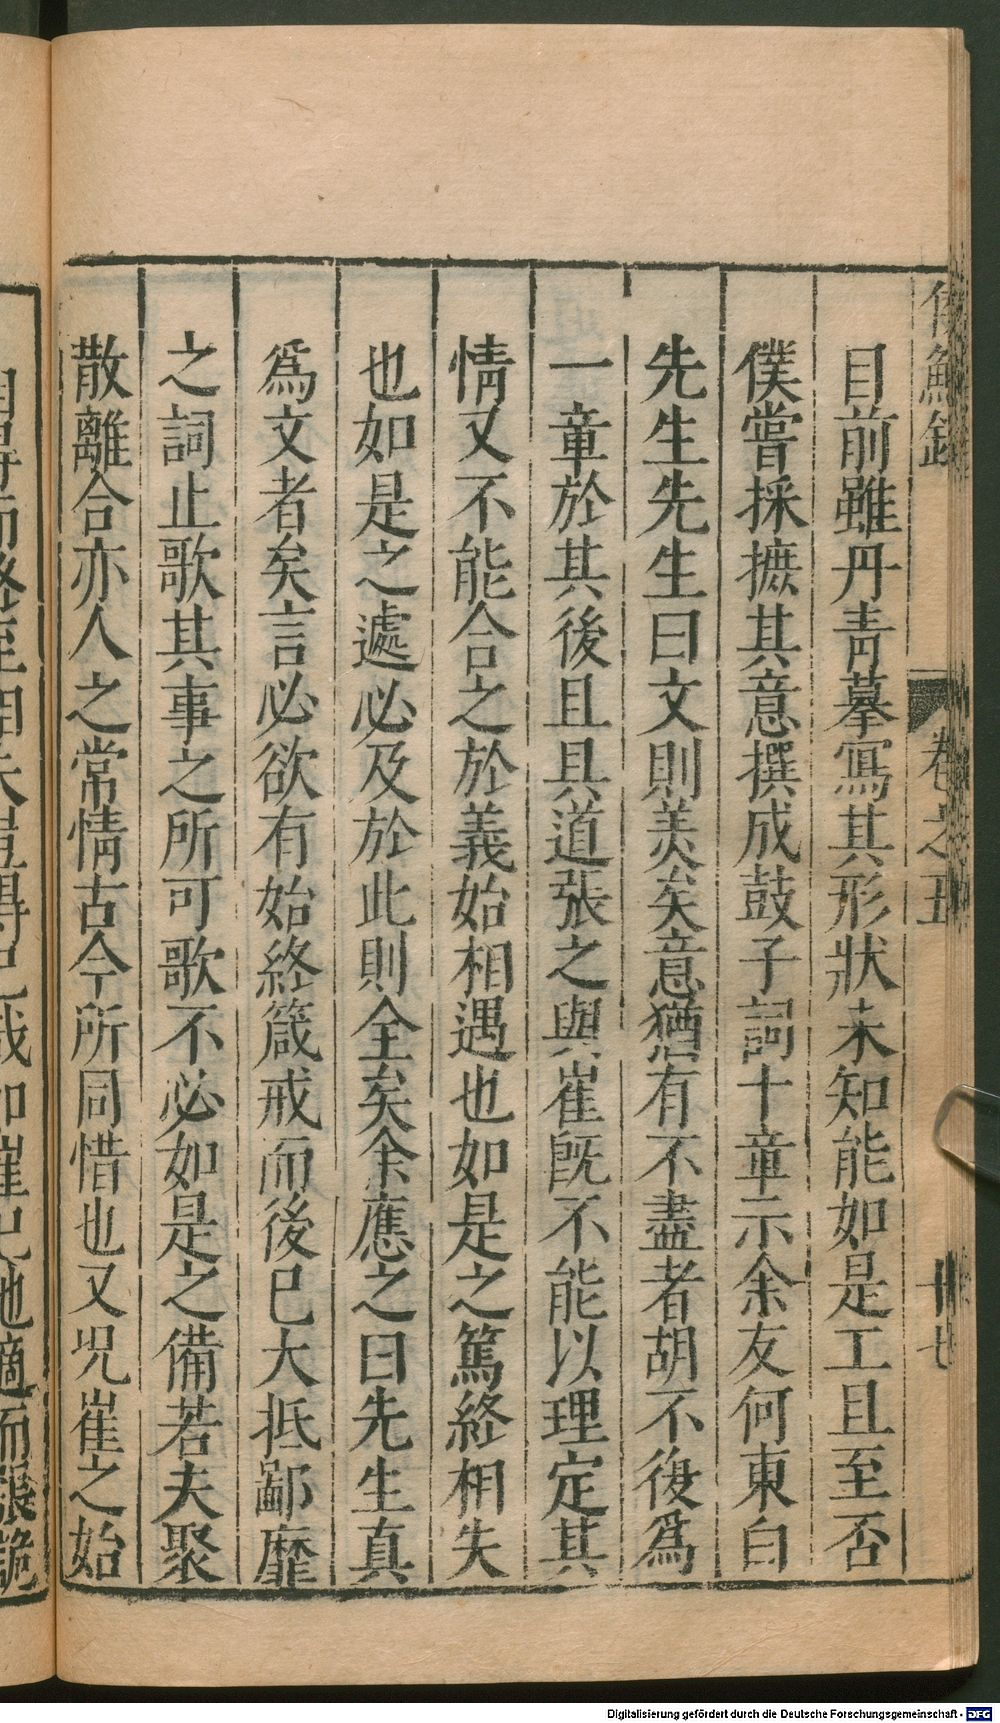 侯鯖錄 卷之五 十七
目前雖丹青摹寫其形狀未知能如是工且至否
僕嘗採摭其意撰成鼓子詞十章示余友何東白
先生先生曰文則美矣意猶有不盡者胡不復爲
一章於其後且具道張之與崔旣不能以理定其
情又不能合之於義始相遇也如是之篤終相失
也如是之遽必及於此則全矣余應之曰先生真
爲文者矣言必欲有始終箴戒而後已大抵鄙靡
之詞止歌其事之所可歌不必如是之備若夫聚
散離合亦人之常情古今所同惜也又況崔之始
相得而終至相失豈得已哉如崔已他適而張詭
Digitalisierung gefördert durch die Deutsche Forschungsgemeinschaft - DFG